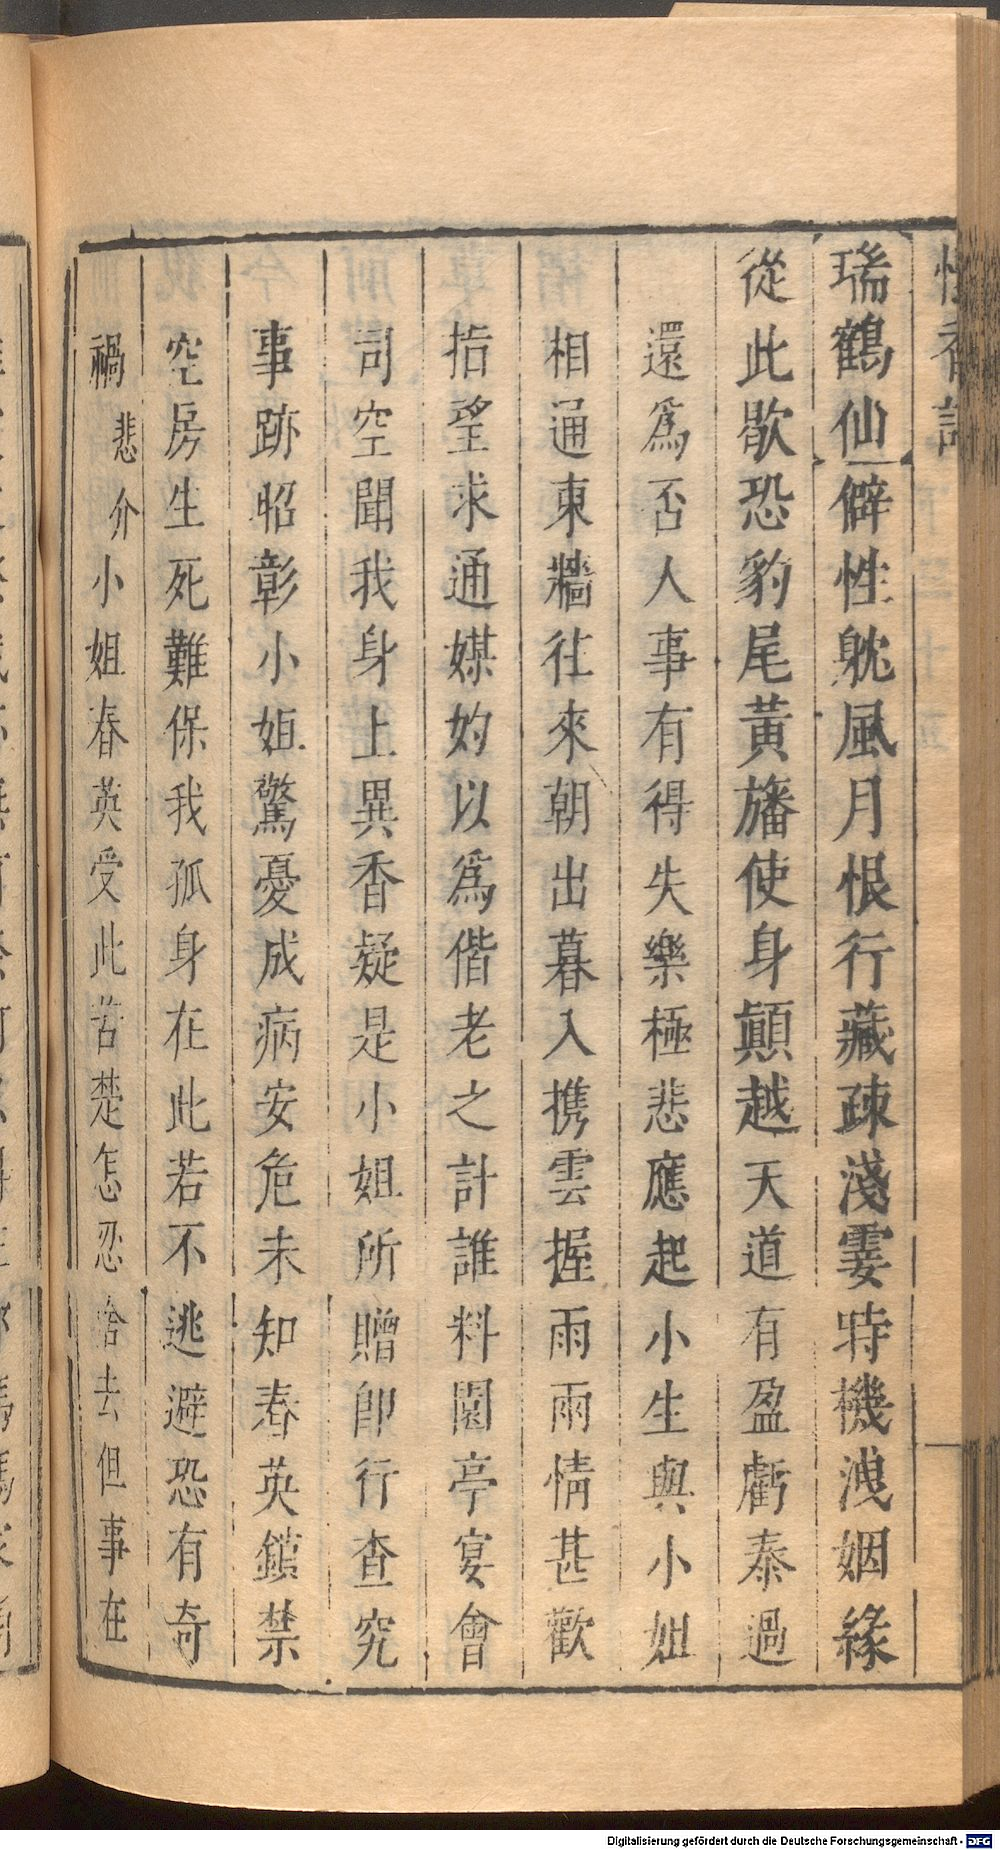 瑞鶴仙僻性躭風月恨行藏疎淺霎時機洩姻緣
從此歇恐豹尾黃旛使身顚越天道有盈虧泰過
還爲否人事有得失樂極悲應起小生與小姐
相通東牆往來朝出暮入携雲握雨雨情甚歡
指望求通媒妁以爲偕老之計誰料園亭宴會
司空聞我身上異香疑是小姐所贈卽行查究
事跡昭彰小姐驚憂成病安危未知春英鎖禁
空房生死難保我孤身在此若不逃避恐有奇
禍悲介小姐春英受此苦楚怎忍捨去但事在
Digitalisierung gefördert durch die Deutsche Forschungsgemeinschaft - DFG